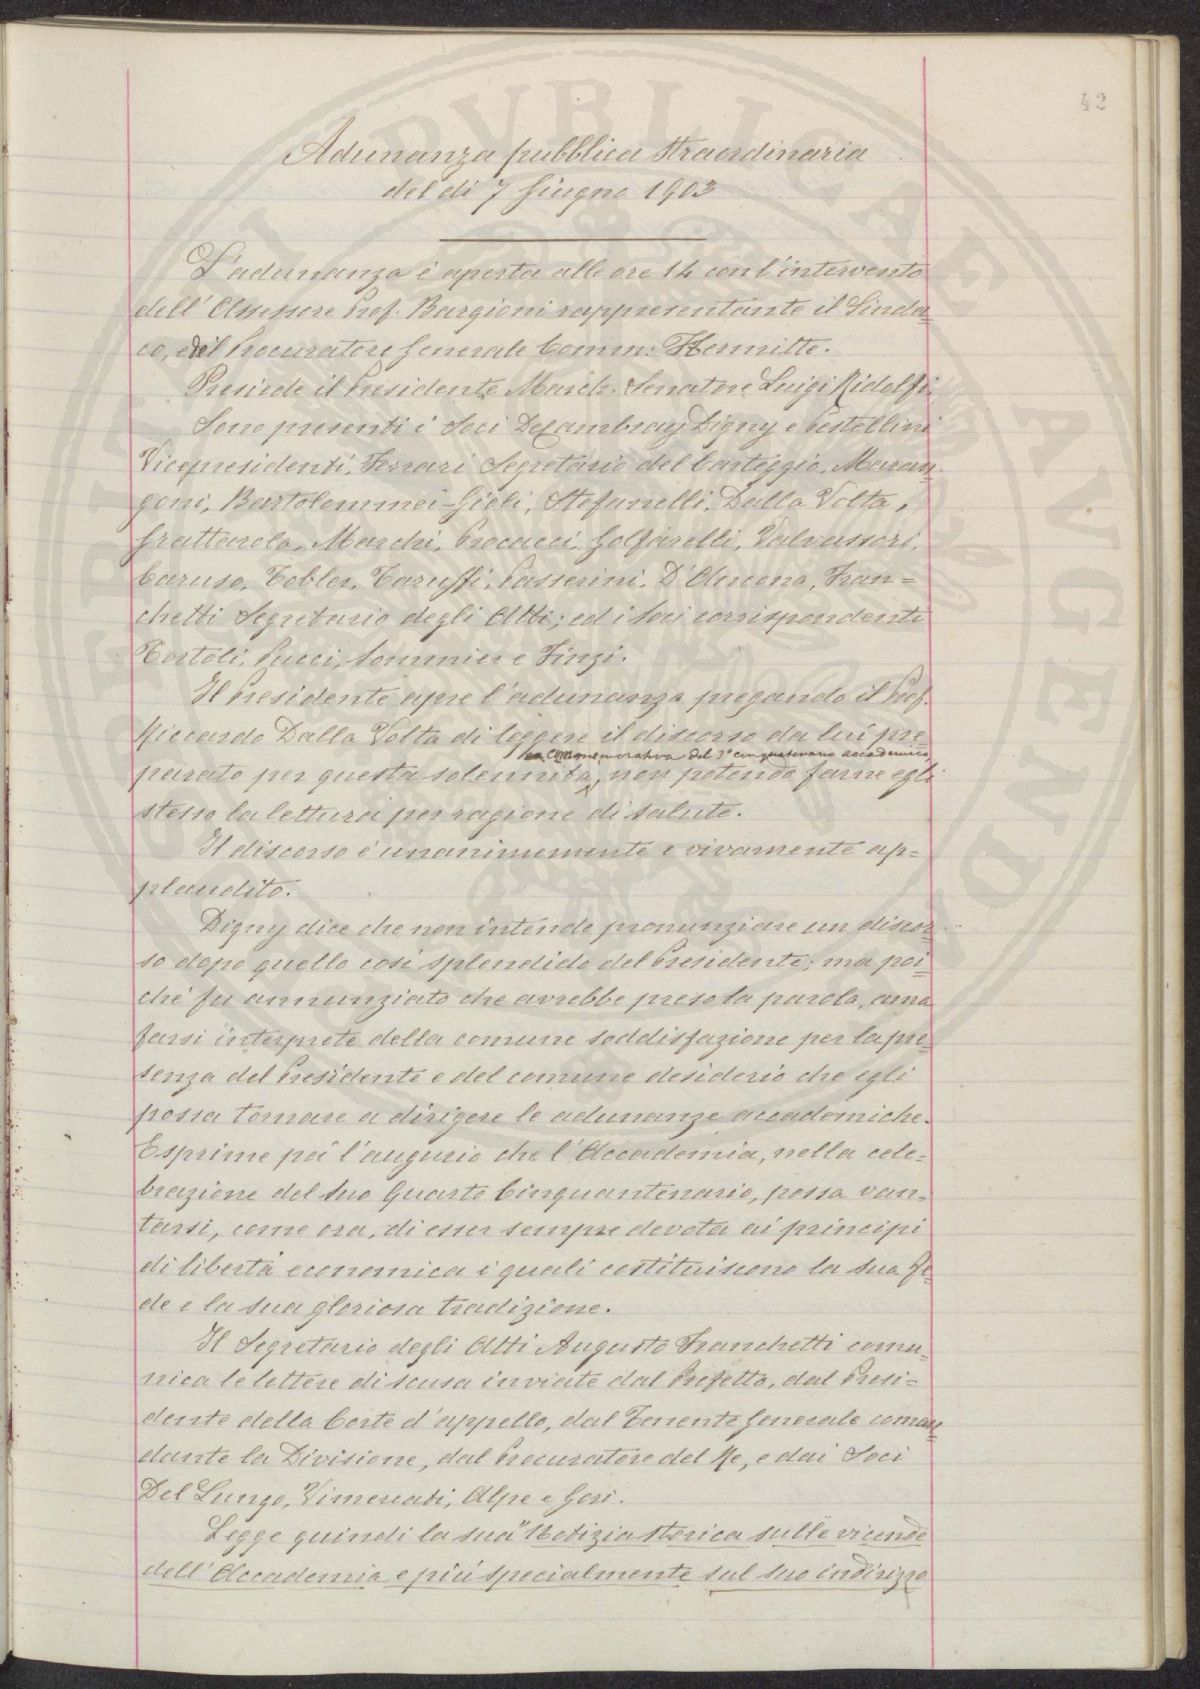 42
Adunanza pubblica straordinaria
del dì 7 Giugno 1903
L'adunanza è aperta alle ore 14 con l'intervento
dell'Assessore Prof. Bargioni rappresentante il Sinda=
co, e del Procuratore Generale Comm: Hermitte.
Presiede il Presidente March. Senatore Luigi Ridolfi.
Sono presenti i Soci De Cambray Digny e Pestellini
Vicepresidenti, Ferrari Segretario del Carteggio, Maran=
goni, Bartolommei-Gioli, Stefanelli, Dalla Volta,
Grattarola, Marchi, Procacci, Golfarelli, Valvassori,
Caruso, Tobler, Taruffi, Passerini, D'Ancona, Fran=
chetti Segretario degli Atti; ed i Soci corrispondenti
Tortoli, Pucci, Sommier e Finzi.
Il Presidente apre l'adunanza pregando il Prof.
Riccardo Dalla Volta di leggere il discorso da lui pre
commemorativa del 3° cinquantenario accademico
parato per questa solennità, non potendo farne egli
stesso la lettura per ragione di salute.
Il discorso è unanimemente e vivamente ap=
plaudito.
Digny dice che non intende pronunziare un discor=
so dopo quello così splendido del Presidente; ma poi=
chè fu annunziato che avrebbe preso la parola, ama
farsi interprete della comune soddisfazione per la pre=
senza del Presidente e del comune desiderio che egli
possa tornare a dirigere le adunanze accademiche.
Esprime poi l'augurio che l'Accademia, nella cele=
brazione del suo Quarto Cinquantenario, possa van=
tarsi, come ora, di esser sempre devota ai principi
di libertà economica i quali costituiscono la sua fe=
de e la sua gloriosa tradizione.
Il Segretario degli Atti Augusto Franchetti comu=
nica le lettere di scusa inviate dal Prefetto, dal Presi=
dente della Corte d'appello, dal Tenente Generale coman=
dante la Divisione, dal Procuratore del Re, e dai Soci
Del Lungo, Vimercati, Alpe e Gori.
Legge quindi la sua "Notizia storica sulle vicende
dell'Accademia e più specialmente sul suo indirizzo